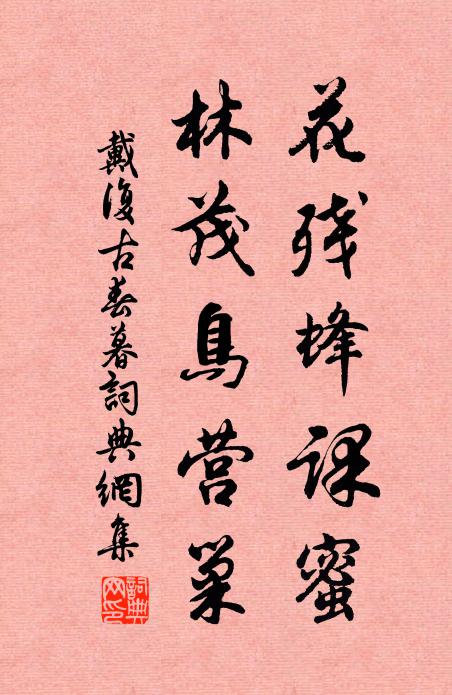 花残蜂课蜜
林茂鸟营巢
戴復古春暮詞典網集
詞典网印